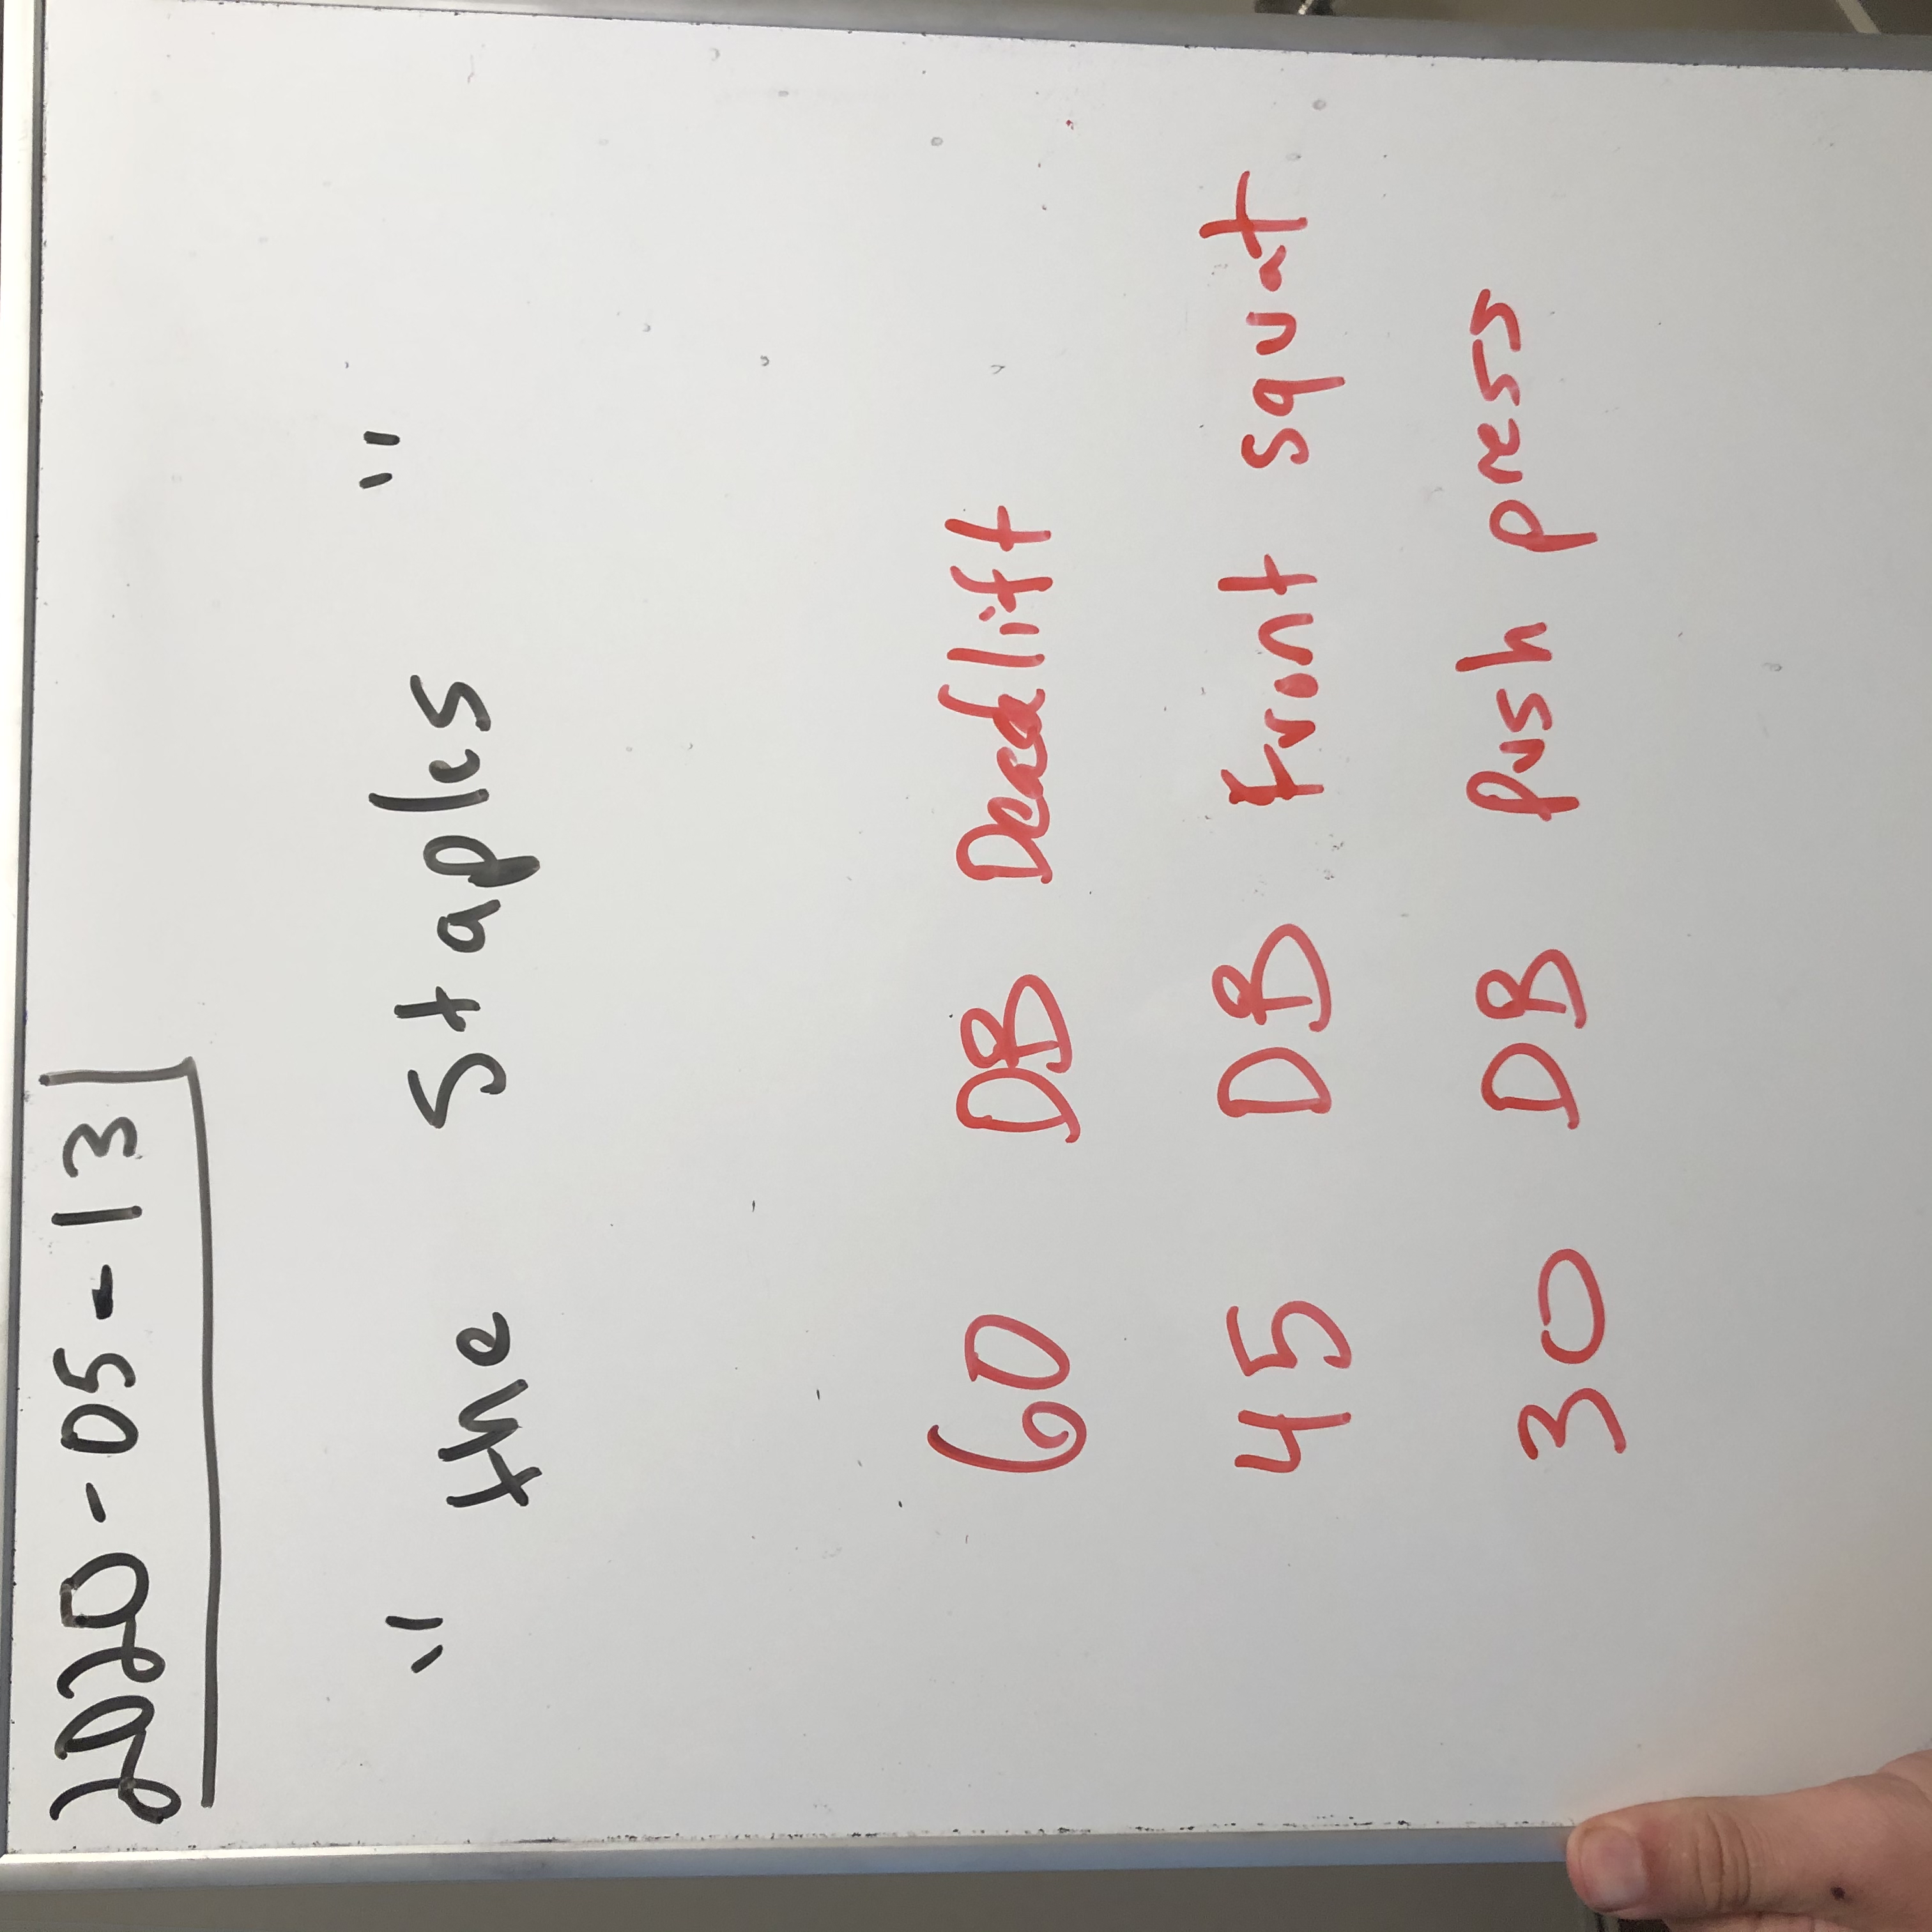 2020-05-13
"the Staples"
60 DB Deadlift
45 DB Front squat
30 DB Push press